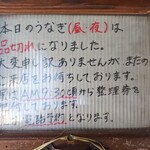 本日のうなぎ(昼夜)は
品切れになりました。
大変申し訳ありませんが、またの
ご来店をお待ちしております。
AM9:30頃から整理券を
しております。
となります。